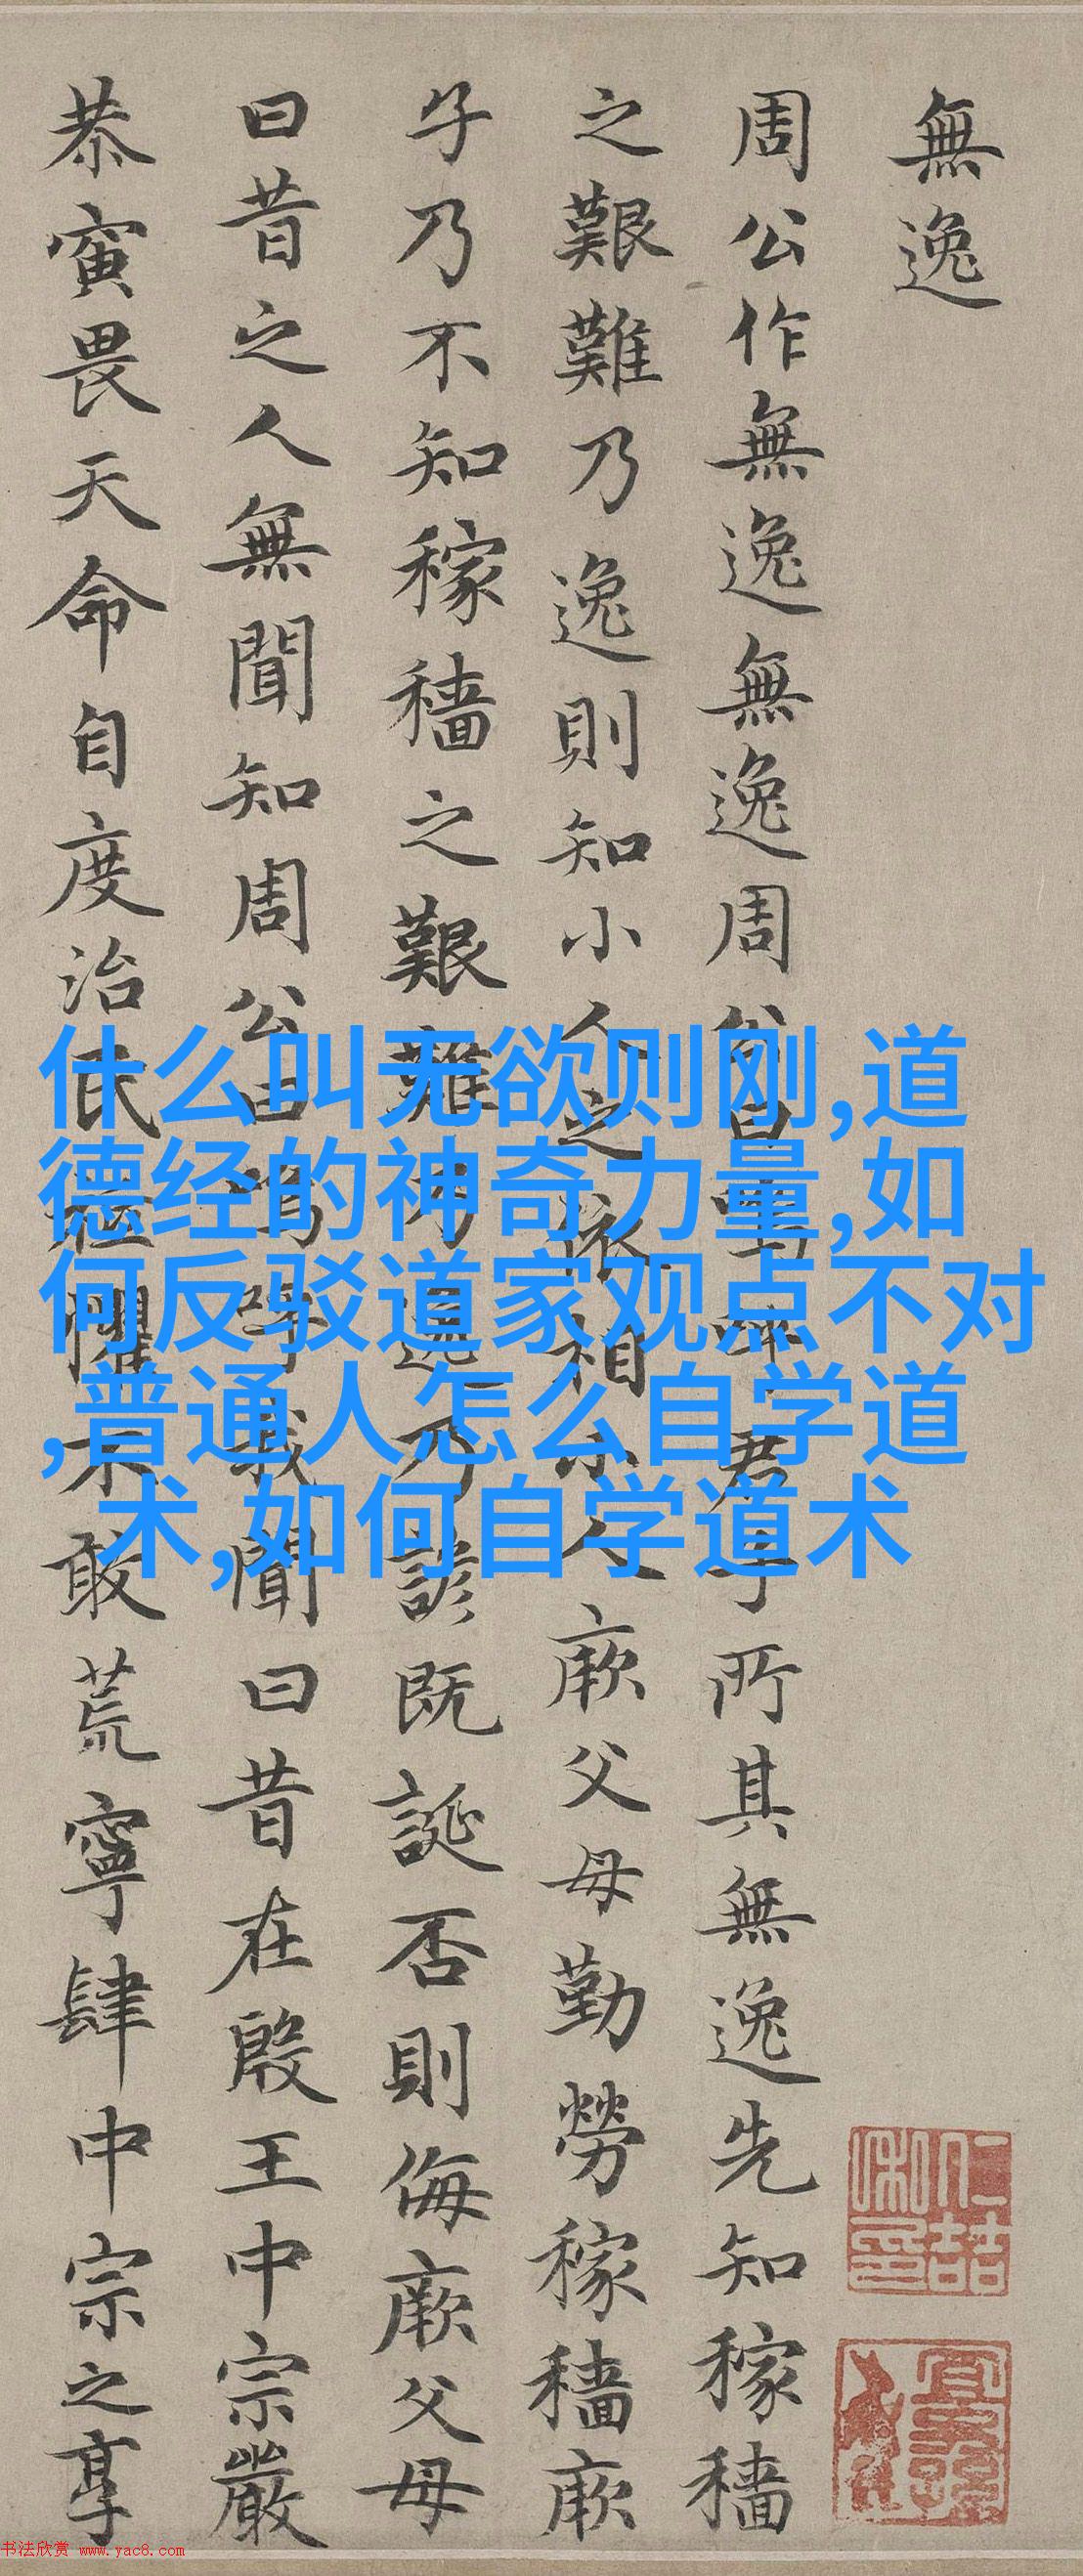 無逸
周公作無逸無逸周公曰嗚呼君子所其無逸先知稼穡
之艱難乃逸則知小人之依相小人厥父母勤勞稼穡厥
子乃不知稼穡之艱難乃逸乃諺既誕否則侮厥父母
曰昔之人無聞知周公曰嗚呼我聞曰昔在殷王中宗嚴
恭寅畏天命自度治民祗懼不敢荒寧肆中宗之享
什么叫无欲则刚,道
德经的神奇力量,如
何反驳道家观点不对
,普通人怎么自学道
术,如何自学道术
书法欣赏 www.yac8.com